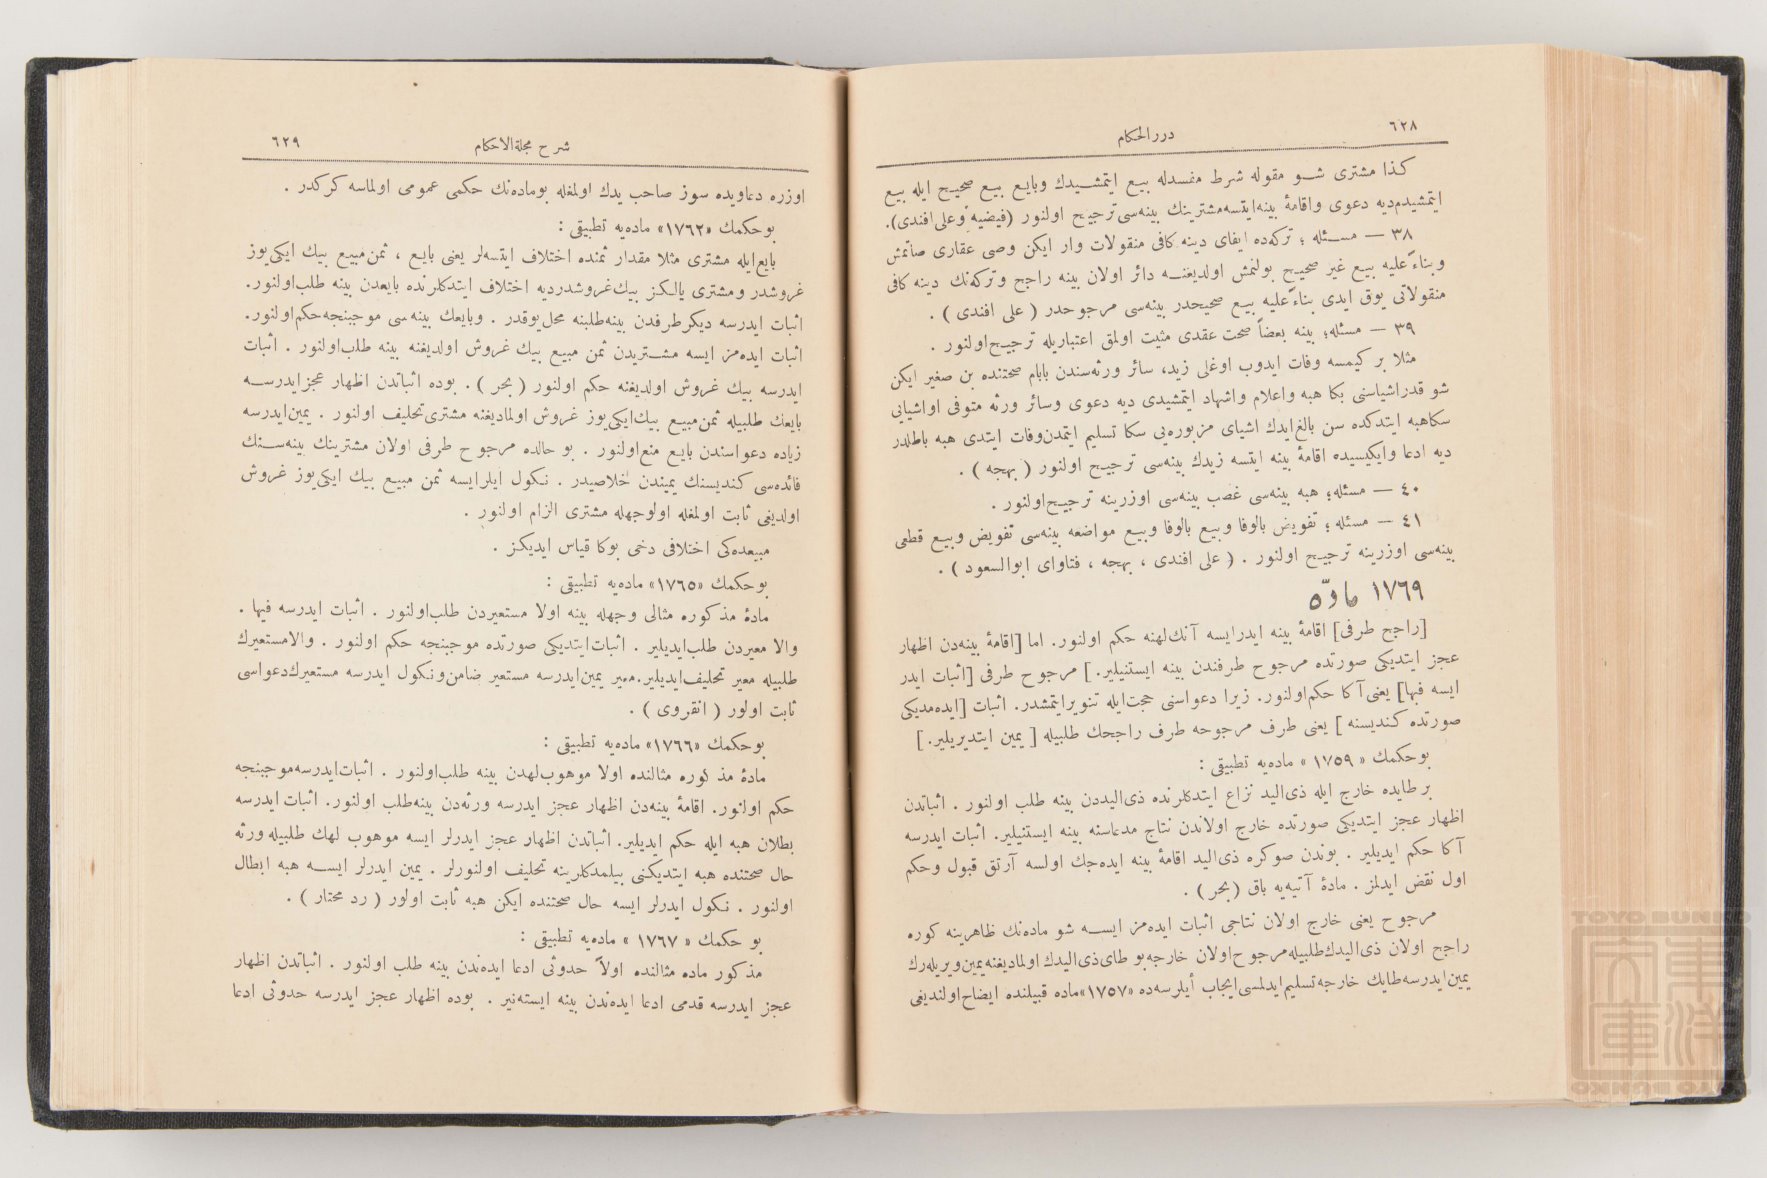 ٦٢٨
دررالحكام
كذا مشترى شو مقوله شرط مفسدله بيع ايتمشيدك وبايع بيع صحيح ايله بيع
ايتمشيدم‌ديه دعوى واقامهٔ بينه‌ايتسه‌مشترينك بينه‌سى‌ترجيح اولنور (فيضيه وعلى‌افندى).
٣٨ — مسئله ؛ تركه‌ده ايفاى دينه كافى منقولات وار ايكن وصى عقارى صاتمش
وبناءً عليه بيع غير صحيح بولنمش اولديغنه دائر اولان بينه راجح وتركه‌نك دينه كافى
منقولاتى يوق ايدى بناءً عليه بيع صحيحدر بينه‌سى مرجوحدر ( على افندى ) .
٣٩ — مسئله؛ بينه بعضاً صحت عقدى مثبت اولمق اعتباريله ترجيح‌اولنور .
مثلا بر كيمسه وفات ايدوب اوغلى زيد، سائر ورثه‌سندن بابام صحتنده بن صغير ايكن
شو قدراشياسنى بكا هبه واعلام واشهاد ايتمشيدى ديه دعوى وسائر ورثه متوفى اواشيايى
سكاهبه ايتدكده سن بالغ‌ايدك اشياى مزبوره‌يى سكا تسليم ايتمدن‌وفات ايتدى هبه باطلدر
ديه ادعا وايكيسيده اقامهٔ بينه ايتسه زيدك بينه‌سى ترجيح اولنور ( بهجه ) .
٤٠ — مسئله؛ هبه بينه‌سى غصب بينه‌سى اوزرينه ترجيح‌اولنور .
٤١ — مسئله ؛ تفويض بالوفا وبيع بالوفا وبيع مواضعه بينه‌سى تفويض وبيع قطعى
بينه‌سى اوزرينه ترجيح اولنور . ( على افندى ، بهجه ، فتاواى ابوالسعود ) .
١٧٦٩ ماده
[راجح طرفى] اقامهٔ بينه ايدرايسه آنك‌لهنه حكم اولنور. اما [اقامهٔ بينه‌دن اظهار
عجز ايتديكى صورتده مرجوح طرفندن بينه ايستنيلير.] مرجوح طرفى [اثبات ايدر
ايسه فبها] يعنى‌آ كا حكم‌اولنور. زيرا دعواسنى حجت‌ايله تنويرايتمشدر. اثبات [ايده‌مديكى
صورتده كنديسنه ] يعنى طرف مرجوحه طرف راجحك طلبيله [ يمين ايتديريلير. ]
بوحكمك « ١٧٥٩ » ماده‌يه تطبيقى :
بر طايده خارج ايله ذى‌اليد نزاع ايتدكلرنده ذى‌اليددن بينه طلب اولنور . اثباتدن
اظهار عجز ايتديكى صورتده خارج اولاندن نتاج مدعاسنه بينه ايستنيلير. اثبات ايدرسه
آ كا حكم ايديلير . بوندن صوكره ذى‌اليد اقامهٔ بينه ايده‌جك اولسه آرتق قبول وحكم
اول نقض ايدلمز . مادهٔ آتيه‌يه باق ( بحر ) .
مرجوح يعنى خارج اولان نتاجى اثبات ايده‌مز ايسه شو ماده‌نك ظاهرينه كوره
راجح اولان ذى‌اليدك‌طلبيله‌مرجوح‌اولان خارجه‌بوطاى‌ذى‌اليدك اولماديغنه‌يمين‌ويريله‌رك
يمين‌ايدرسه‌طايك خارجه‌تسليم‌ايدلمسى‌ايجاب أيلرسه‌ده «١٧٥٧»ماده قبيلنده ايضاح‌اولنديغى
شرح مجلة‌الاحكام
٦٢٩
اوزره دعاويده سوز صاحب يدك اولمغله بوماده‌نك حكمى عمومى اولماسه كركدر .
بوحكمك «١٧٦٢» ماده‌يه تطبيقى :
بايع‌ايله مشترى مثلا مقدار ثمنده اختلاف ايتسه‌لر يعنى بايع ، ثمن‌مبيع بيك ايكى‌يوز
غروشدر ومشترى يالكز بيك‌غروشدرديه اختلاف ايتدكلرنده بايعدن بينه طلب‌اولنور.
اثبات ايدرسه ديكرطرفدن بينه‌طلبنه محل‌يوقدر . وبايعك بينه‌سى موجبنجه‌حكم‌اولنور.
اثبات ايده‌مز ايسه مشتريدن ثمن مبيع بيك غروش اولديغنه بينه طلب‌اولنور . اثبات
ايدرسه بيك غروش اولديغنه حكم اولنور ( بحر ) . بوده اثباتدن اظهار عجزايدرسه
بايعك طلبيله ثمن‌مبيع بيك‌ايكى‌يوز غروش اولماديغنه مشترى‌تحليف اولنور . يمين‌ايدرسه
زياده دعواسندن بايع منع‌اولنور . بو حالده مرجوح طرفى اولان مشترينك بينه‌سنك
فائده‌سى كنديسنك يميندن خلاصيدر . نكول ايلرايسه ثمن مبيع بيك ايكى‌يوز غروش
اولديغى ثابت اولمغله اولوجهله مشترى الزام اولنور .
مبيعده‌كى اختلافى دخى بوكا قياس ايديكز .
بوحكمك «١٧٦٥» ماده‌يه تطبيقى :
مادهٔ مذكوره مثالى وجهله بينه اولا مستعيردن طلب‌اولنور . اثبات ايدرسه فبها .
والا معيردن طلب‌ايديلير . اثبات‌ايتديكى صورتده موجبنجه حكم اولنور . والامستعيرك
طلبيله معير تحليف‌ايديلير.معير يمين‌ايدرسه مستعير ضامن‌ونكول ايدرسه مستعيرك‌دعواسى
ثابت اولور ( انقروى ) .
بوحكمك «١٧٦٦» ماده‌يه تطبيقى :
مادهٔ مذكوره مثالنده اولا موهوب‌لهدن بينه طلب‌اولنور . اثبات‌ايدرسه‌موجبنجه
حكم اولنور. اقامهٔ بينه‌دن اظهار عجز ايدرسه ورثه‌دن بينه‌طلب اولنور. اثبات ايدرسه
بطلان هبه ايله حكم ايديلير. اثباتدن اظهار عجز ايدرلر ايسه موهوب لهك طلبيله ورثه
حال صحتنده هبه ايتديكنى بيلمدكلرينه تحليف اولنورلر . يمين ايدرلر ايسه هبه ابطال
اولنور . نكول ايدرلر ايسه حال صحتنده ايكن هبه ثابت اولور ( رد محتار ) .
بو حكمك « ١٧٦٧ » ماده‌يه تطبيقى :
مذكور ماده مثالنده اولاً حدوثى ادعا ايده‌ندن بينه طلب اولنور . اثباتدن اظهار
عجز ايدرسه قدمى ادعا ايده‌ندن بينه ايسته‌نير . بوده اظهار عجز ايدرسه حدوثى ادعا
TOYO BUNKO